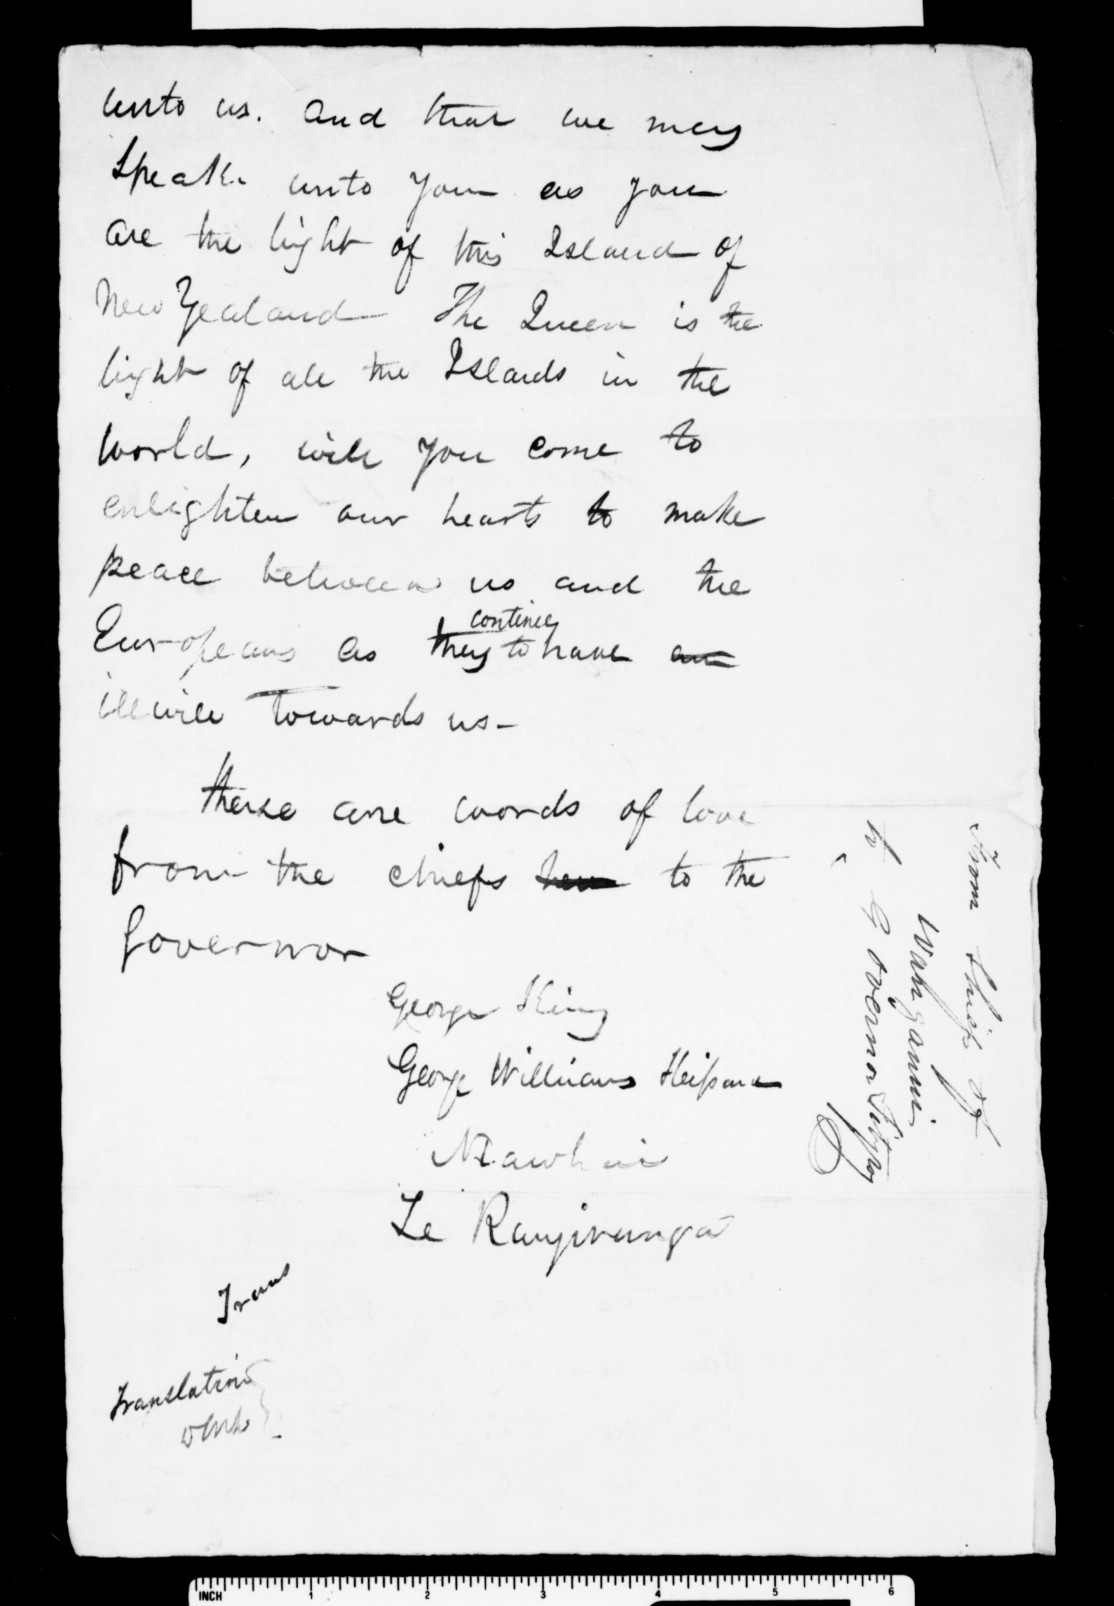 unto us. and that we may
Speak unto you as you
are the light of this Island of
New Zealand The Queen is the
light of all the Islands in the
world, will you come to
enlighten our hearts to make
peace between us and the
continue
Europeans as they to have an
illwill towards us-
these are words of love
from the chiefs here to the
Governor
George King
George Williams Heipara
Mawhai
Te Rangirunga
Trans
Translation
From Chiefs of
Wanganui
to Governor Fitzroy
INCH 1 2 3 4 5 6